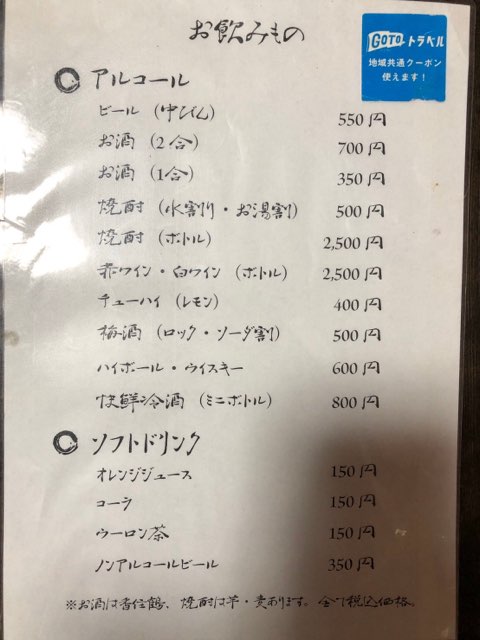 お飲みもの
GOTOトラベル
地域共通クーポン
使えます！
アルコール
ビール（中びん） 550円
お酒（2合） 700円
お酒（1合） 350円
焼酎（水割り・お湯割） 500円
焼酎（ボトル） 2,500円
赤ワイン・白ワイン（ボトル） 2,500円
チューハイ（レモン） 400円
梅酒（ロック・ソーダ割） 500円
ハイボール・ウイスキー 600円
快鮮冷酒（ミニボトル） 800円
ソフトドリンク
オレンジジュース 150円
コーラ 150円
ウーロン茶 150円
ノンアルコールビール 350円
※お酒は香住鶴、焼酎は芋・麦あります。全て税込価格。